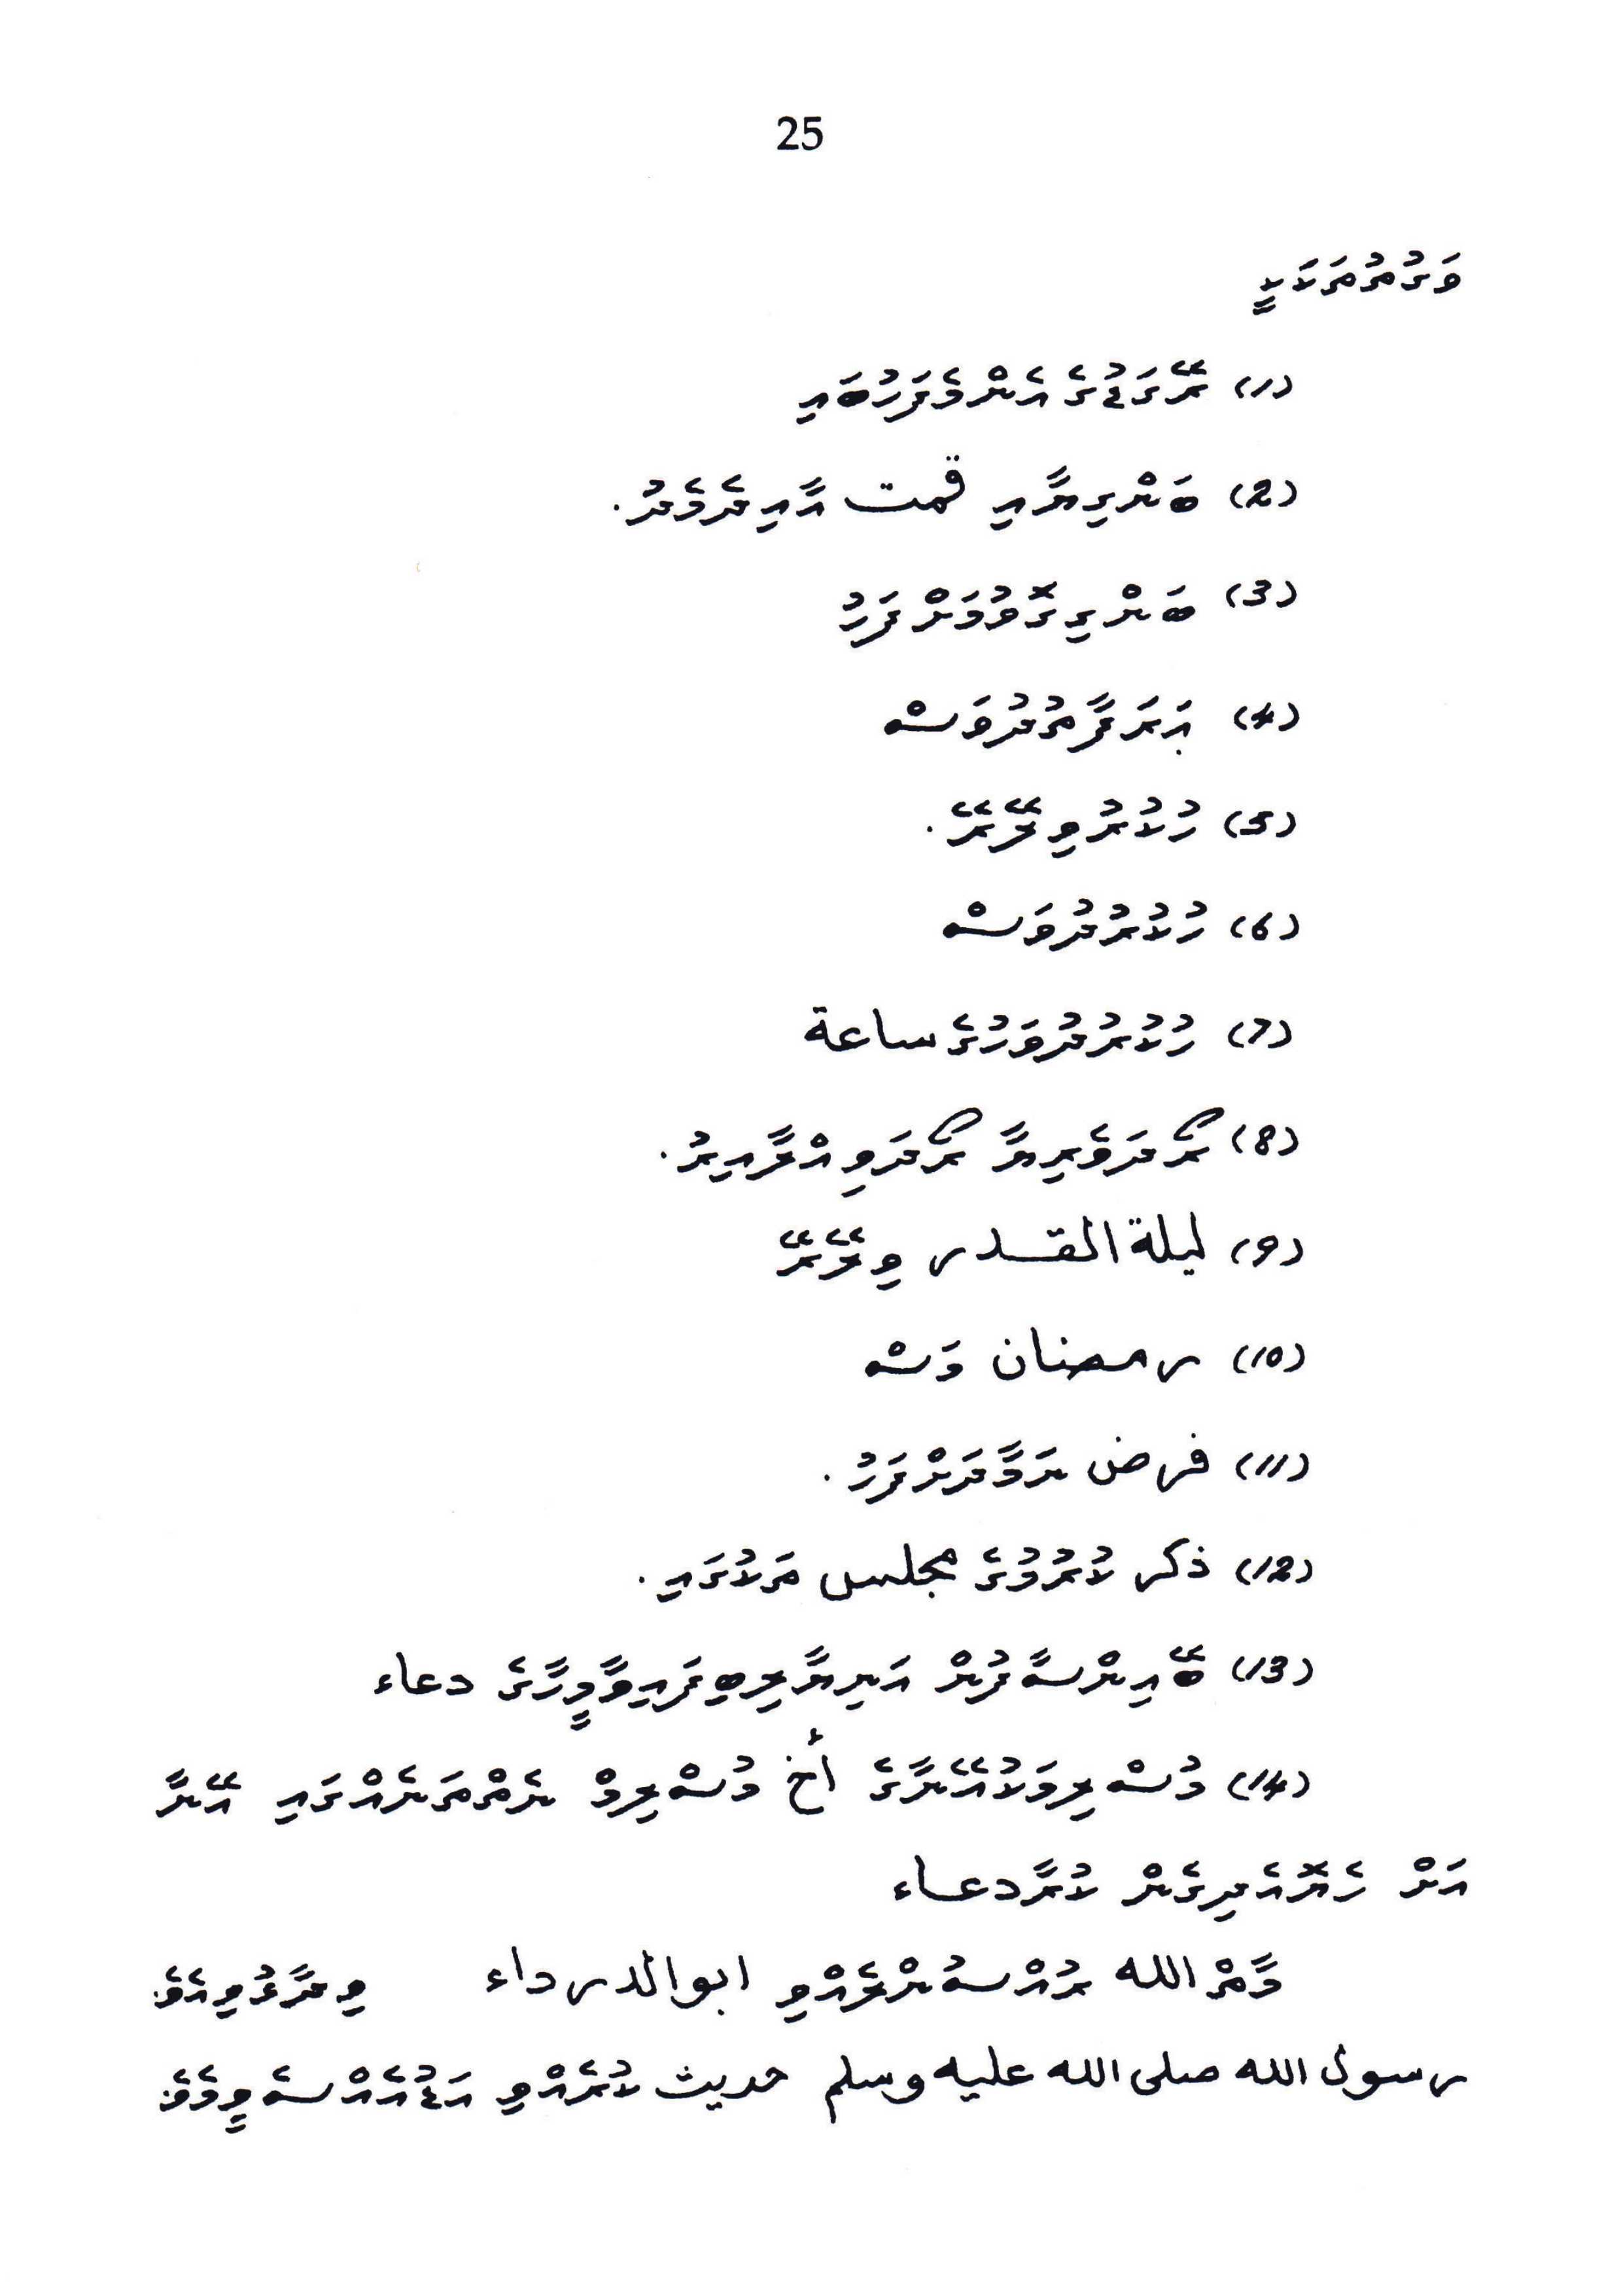 25
ވަގުތުތަކަކީ
(1) ރޭގަޑުގެ އެންމެފަހުބައި
(2) ބަންގިޔާއި قمت އާއިދެމެދު.
(3) ބަންގިގޮވުމަށްފަހު
(4) ޢަރަފާތުދުވަސް
(5) ހުކުރުވިލޭރޭ.
(6) ހުކުރުދުވަސް
(7) ހުކުރުދުވަހުގެ ساعة
(8) ރޯދަވެރިޔާ ރޯދަވިއްލާއިރު.
(9) ليلة القدر ވިލޭރޭ
(10) رمضان މަސް
(11) فرض ނަމާދަށްފަހު.
(12) ذكر ކުރުމުގެ مجلس ތަކުގައި.
(13) ބޭއިންސާފުން އަނިޔާލިބިފައިވާމީހާގެ دعاء
(14) މުސްލިމަކުއޭނާގެ أخ މުސްލިމް ނެތްތަނެއްގައި އޭނާ
އަށް ހެޔޮއެދިގެން ކުރާ دعاء
މާތް الله ރުއްސުންލެއްވި ابوالدرداء ވިދާޅުވިއެވެ.
رسول الله صلى الله عليه وسلم حديث ކުރެއްވި އަޑުއެއްސެވީމެވެ.